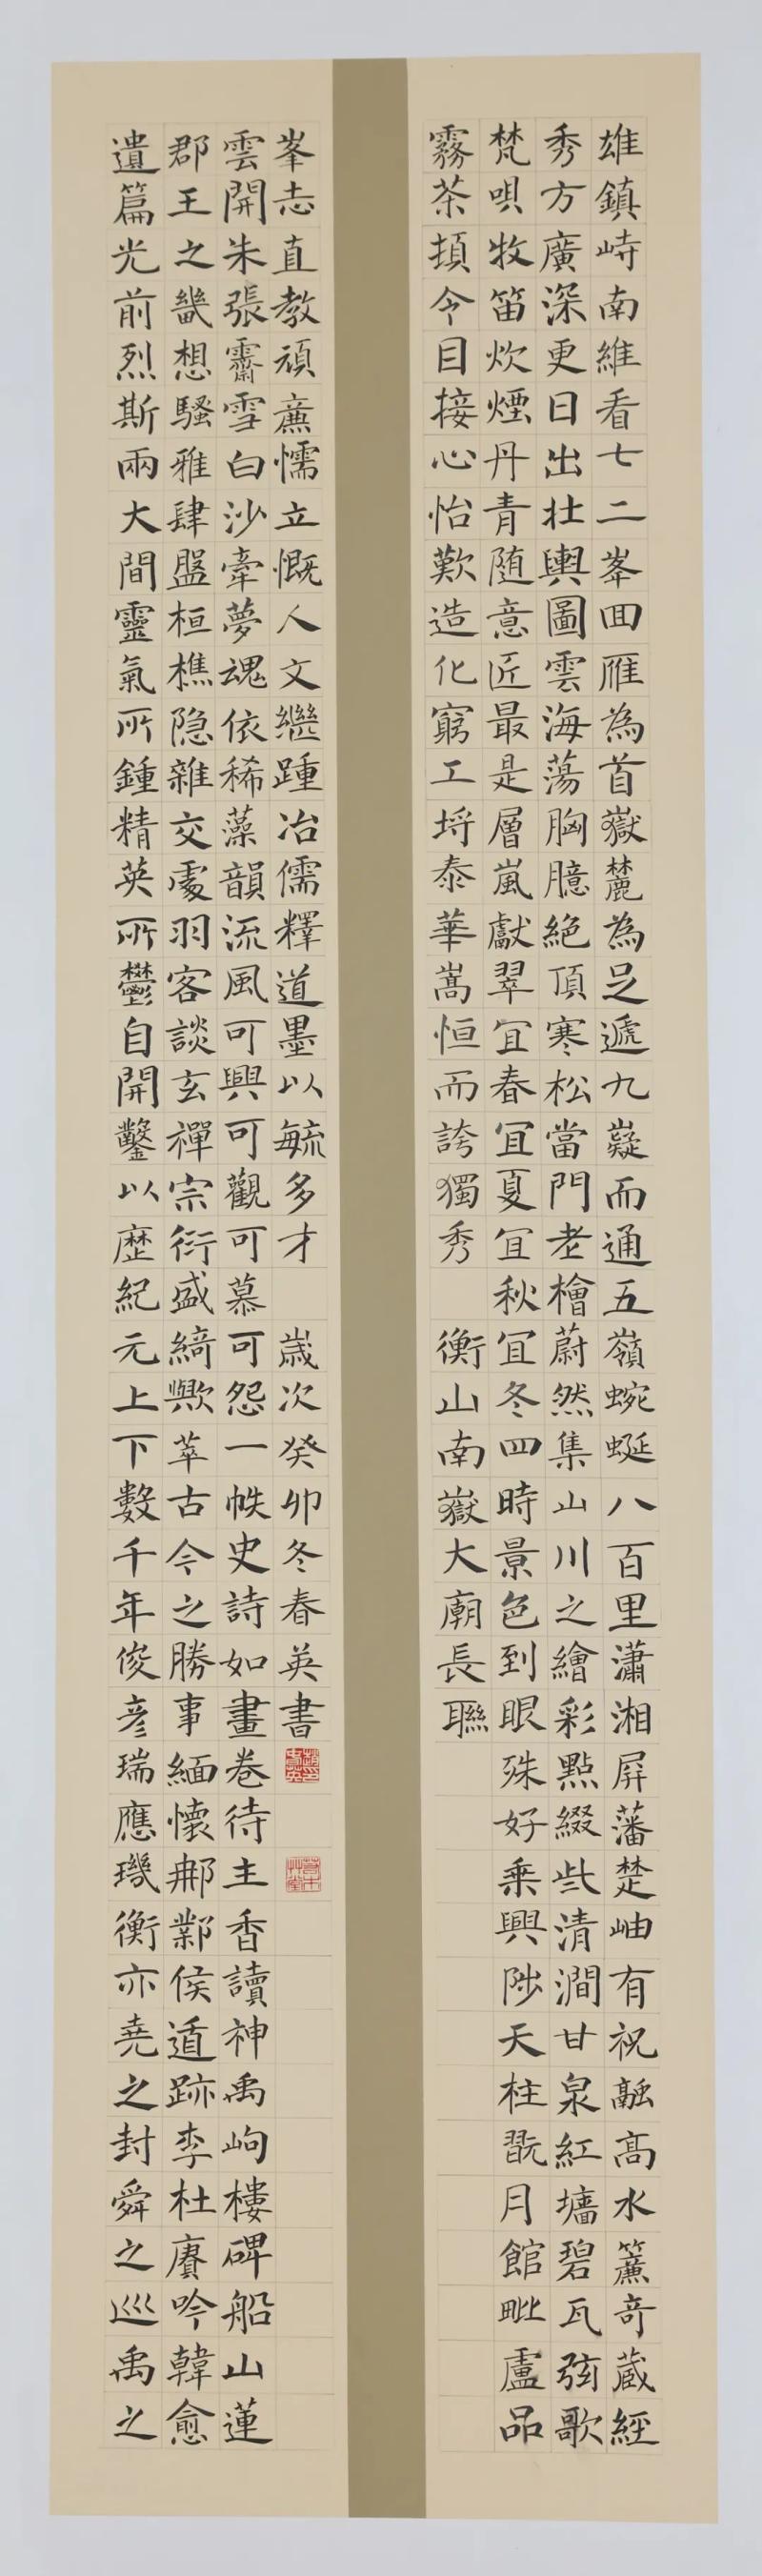 雄鎮峙南維看七二峯回雁為首嶽麓為足遞九嶷而通五嶺蜿蜒八百里瀟湘屏藩楚岫有祝融高水簾奇藏經
秀方廣深更日出壯輿圖雲海蕩胸臆絕頂寒松當門老檜蔚然集山川之繪彩點綴些清澗甘泉紅墻碧瓦弦歌
梵唄牧笛炊煙丹青随意匠最是層嵐獻翠宜春宜夏宜秋宜冬四時景色到眼殊好乘興陟天柱翫月館毗盧品
霧茶頓令目接心怡歎造化窮工埒泰華嵩恒而誇獨秀 衡山南嶽大廟長聯
遺篇光前烈斯兩大間靈氣所鍾精英所鬱自開鑿以歷紀元上下數千年俊彥瑞應璣衡亦堯之封舜之巡禹之
郡王之畿想騷雅肆盤桓樵隐雜交處羽客談玄禪宗衍盛綺歟萃古今之勝事緬懷鄴侯遁跡李杜賡吟韓愈
雲開朱張霽雪白沙牽夢魂依稀藻韻流風可興可觀可慕可怨一帙史詩如畫卷待主香讀神禹岣嶁碑船山蓮
峯志直教頑廉懦立慨人文繼踵冶儒釋道墨以毓多才 歲次癸卯冬春英書